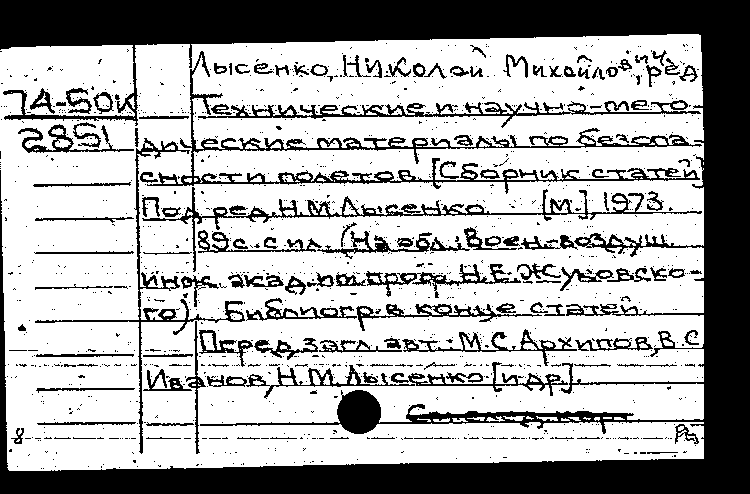 Лысенко, Николай Михайлович, ред
74-50к Технические и научно-мето-
2851 дические материалы по безопа-
сности полетов. [Сборник статей]
Под ред. Н.М. Лысенко. [М.], 1973.
89с. с ил. (На обл.: Воен.-воздуш.
инж. акад. им. проф. Н.Е. Жуковско-
го). Библиогр. в конце статей.
Перед загл. авт.: М.С. Архипов, В.С.
Иванов, Н.М. Лысенко [и др].
См. след. карт
8